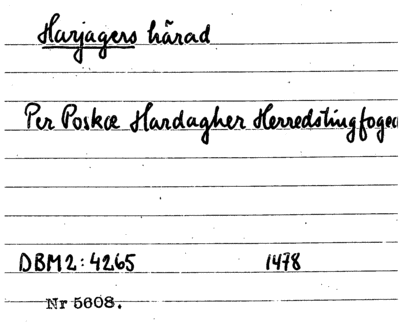 Harjagers härad
Per Poskæ Hardagher Herredstingfoged
DBM2:4265 1478
Nr 5608.